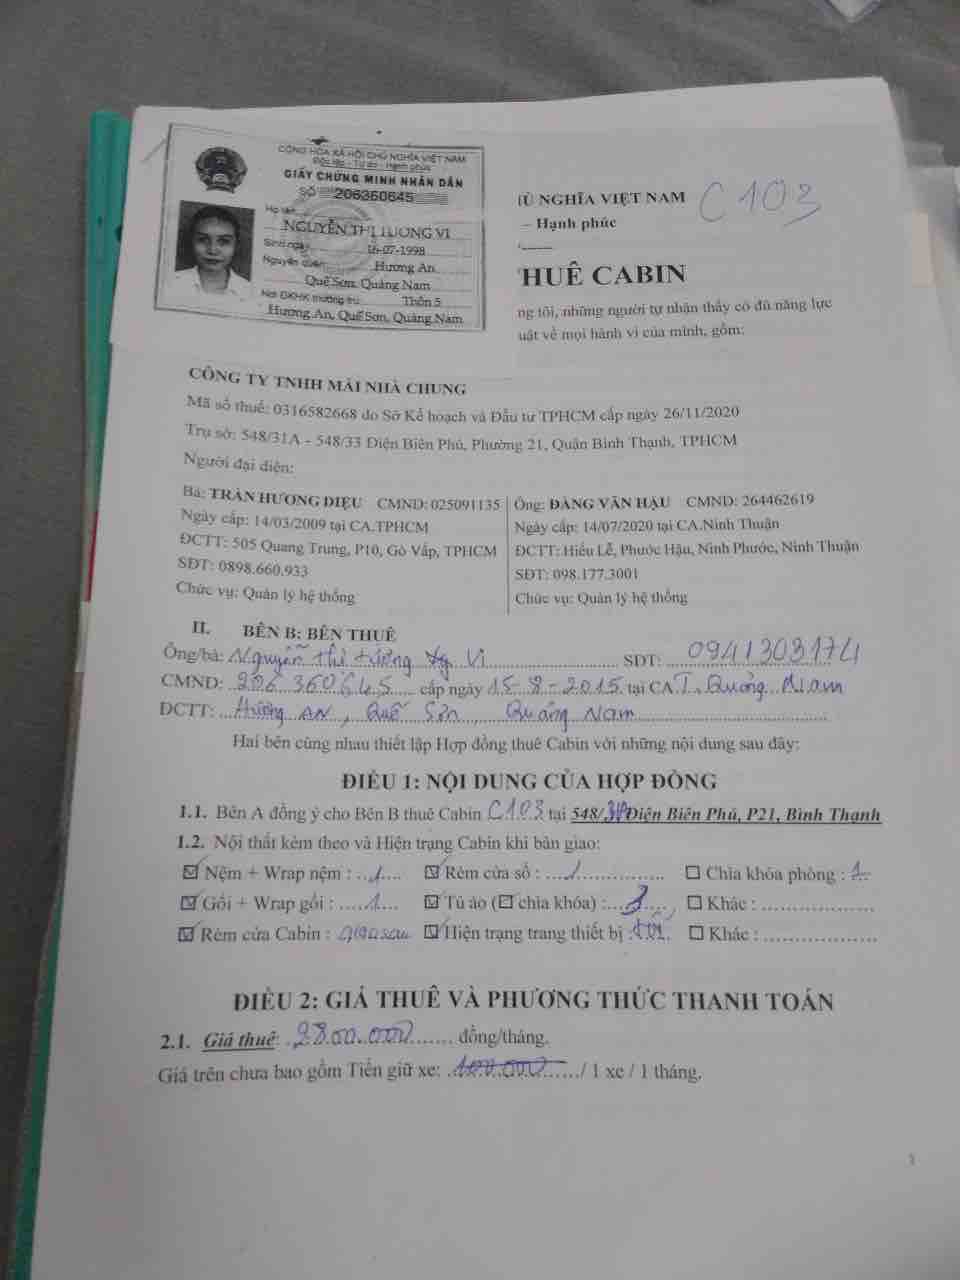 CỘNG HÒA XÃ HỘI CHỦ NGHĨA VIỆT NAM
Độc lập - Tự do - Hạnh phúc
GIẤY CHỨNG MINH NHÂN DÂN
SỐ 206360645
Họ tên
NGUYỄN THỊ TƯỜNG VI
Sinh ngày 16-07-1998
Nguyên quán Hương An
Quế Sơn, Quảng Nam
Nơi ĐKHK thường trú: Thôn 5
Hương An, Quế Sơn, Quảng Nam
Ủ NGHĨA VIỆT NAM
C103
– Hạnh phúc
HUÊ CABIN
ng tôi, những người tự nhận thấy có đủ năng lực
uật về mọi hành vi của mình, gồm:
CÔNG TY TNHH MÁI NHÀ CHUNG
Mã số thuế: 0316582668 do Sở Kế hoạch và Đầu tư TPHCM cấp ngày 26/11/2020
Trụ sở: 548/31A - 548/33 Điện Biên Phủ, Phường 21, Quận Bình Thạnh, TPHCM
Người đại diện:
Bà: TRẦN HƯƠNG DIỆU CMND: 025091135
Ngày cấp: 14/03/2009 tại CA.TPHCM
ĐCTT: 505 Quang Trung, P10, Gò Vấp, TPHCM
SĐT: 0898.660.933
Chức vụ: Quản lý hệ thống
Ông: ĐÀNG VĂN HẬU CMND: 264462619
Ngày cấp: 14/07/2020 tại CA.Ninh Thuận
ĐCTT: Hiếu Lễ, Phước Hậu, Ninh Phước, Ninh Thuận
SĐT: 098.177.3001
Chức vụ: Quản lý hệ thống
II. BÊN B: BÊN THUÊ
Ông/bà: Nguyễn thị tường Vi SĐT: 0941303174
CMND: 206360645 cấp ngày 15-8-2015 tại CA T. Quảng Nam
ĐCTT: Hương AN, Quế Sơn, Quảng Nam
Hai bên cùng nhau thiết lập Hợp đồng thuê Cabin với những nội dung sau đây:
ĐIỀU 1: NỘI DUNG CỦA HỢP ĐỒNG
1.1. Bên A đồng ý cho Bên B thuê Cabin C103 tại 548/ Điện Biên Phủ, P21, Bình Thạnh
1.2. Nội thất kèm theo và Hiện trạng Cabin khi bàn giao:
Nệm + Wrap nệm : 1 Rèm cửa sổ : 1 Chìa khóa phòng : 1
Gối + Wrap gối : 1 Tủ áo ( chìa khóa) : Khác :
Rèm cửa Cabin : giao sau Hiện trạng trang thiết bị : tốt Khác :
ĐIỀU 2: GIÁ THUÊ VÀ PHƯƠNG THỨC THANH TOÁN
2.1. Giá thuê: 2800.000 đồng/tháng.
Giá trên chưa bao gồm Tiền giữ xe: 100.000 / 1 xe / 1 tháng.
1